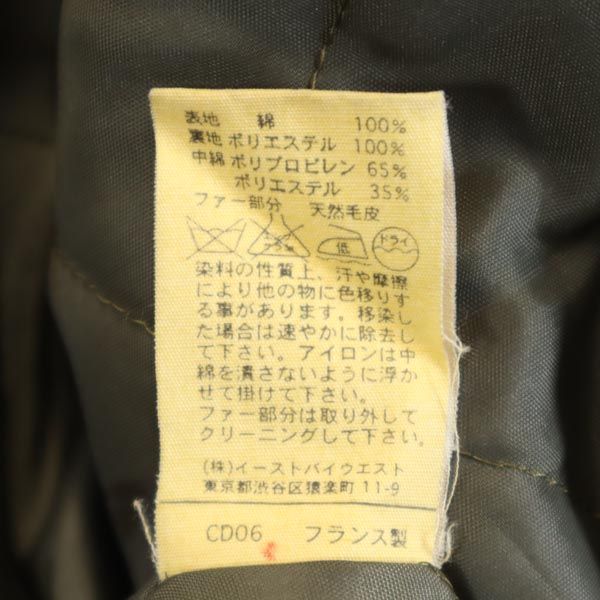 表地 綿 100%
裏地 ポリエステル 100%
中綿 ポリプロピレン 65%
ポリエステル 35%
ファー部分 天然毛皮
エンソサラシ 低 ドライ
染料の性質上、汗や摩擦
により他の物に色移りす
る事があります。移染し
た場合は速やかに除去し
て下さい。アイロンは中
綿を潰さないように浮か
せて掛けて下さい。
ファー部分は取り外して
クリーニングして下さい。
(株)イーストバイウエスト
東京都渋谷区猿楽町 11-9
CD06 フランス製